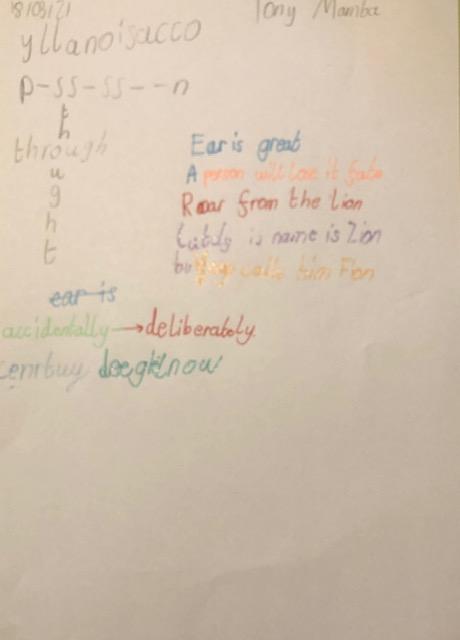 18/03/21 Tony Mamba
yllanoisacco
p-ss-ss---n
t
h
through
u
g
h
t
Ear is great
A person will love it
Roar from the Lion
is name is Zion
but calls him Fion
ear is
accidentally → deliberately